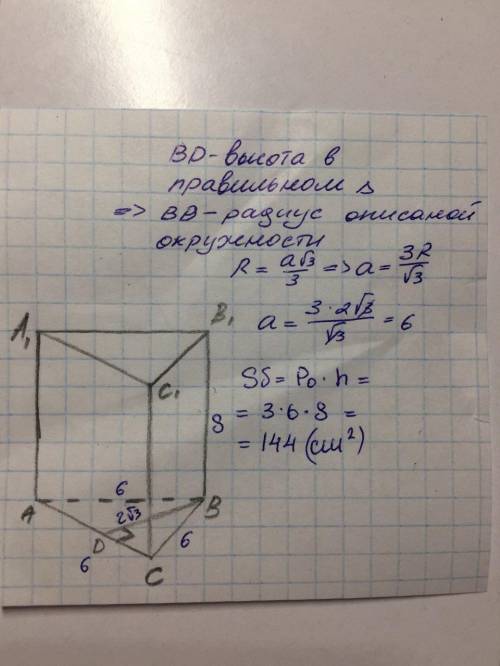 BD - высота в
правильном Δ
=> BD - радиус описаной
окружности
R = a√3/3 => a = 3R/√3
a = 3·2√3/√3 = 6
Sб = Po · h =
= 3·6·8 =
= 144 (см²)
A₁
B₁
C₁
8
6
A
B
2√3
D
6
6
C